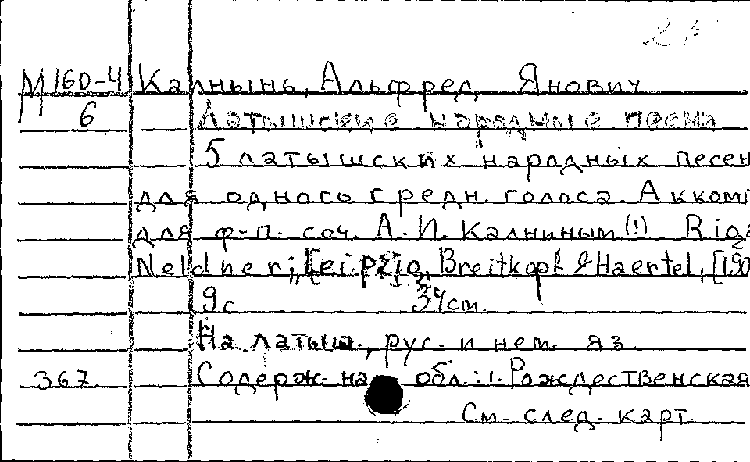 М 160-4 Калнынь, Альфред Янович
6 Латышские народные песни
5 латышских народных песен
для одного средн. голоса. Акком
для ф-п. соч. А. И. Калниным(!) Rig
Neldner; Leipzig, Breitkopf & Haertel, [190
9с 34см.
На латыш., рус. и нем. яз.
367 Содерж. на обл.: 1. Рождественская
См. след. карт.